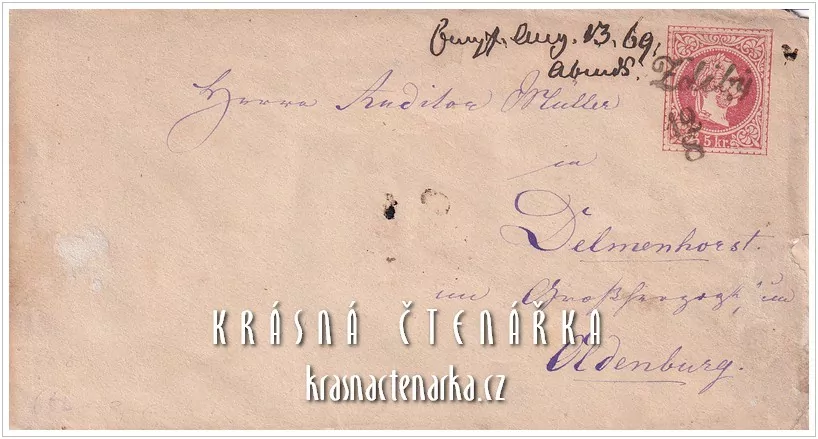 Empf. Aug. 13. 69.
Abends.
Zleby
12
8
5 kr.
Herrn Auditor Müller
in
Delmenhorst.
im Großherzogth. im
Oldenburg.
KRÁSNÁ ČTENÁŘKA
krasnactenarka.cz